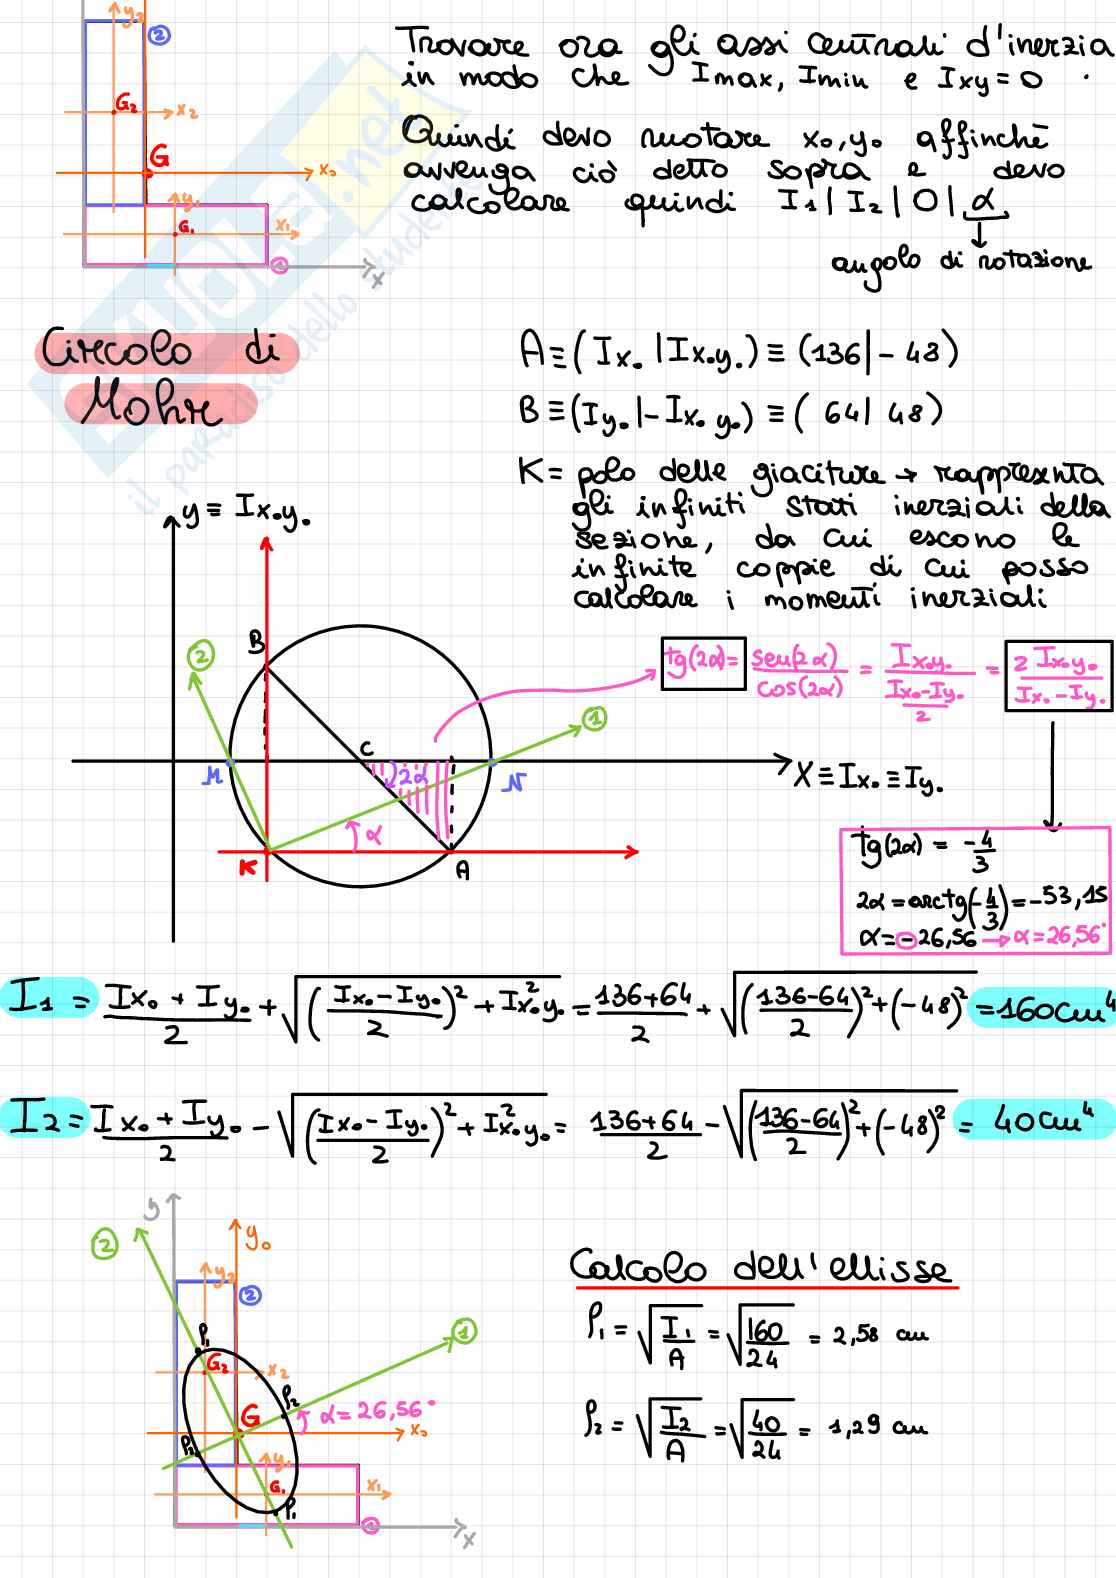 y₂
②
G₂
x₂
G
x₀
y₁
G₁
x₁
①
x
Trovare ora gli assi centrali d'inerzia
in modo che Imax, Imin e Ixy=0.
Quindi devo ruotare x₀,y₀ affinchè
avvenga ciò detto sopra e devo
calcolare quindi I₁|I₂|0|α
angolo di rotazione
Circolo di
Mohr
A≡(Ix₀|Ix₀y₀)≡(136|-48)
B≡(Iy₀|-Ix₀y₀)≡(64|48)
K= polo delle giaciture → rappresenta
gli infiniti stati inerziali della
sezione, da cui escono le
infinite coppie di cui posso
calcolare i momenti inerziali
y≡Ix₀y₀
B
②
①
C
M
2α
N
X≡Ix₀≡Iy₀
α
K
A
tg(2α)= sen(2α)/cos(2α) = Ix₀y₀/((Ix₀-Iy₀)/2) = 2Ix₀y₀/(Ix₀-Iy₀)
tg(2α) = -4/3
2α=arctg(-4/3)=-53,15
α=-26,56→α=26,56°
I₁ = (Ix₀+Iy₀)/2 + √(((Ix₀-Iy₀)/2)²+I²x₀y₀) = (136+64)/2 + √(((136-64)/2)²+(-48)²) =160cm⁴
I₂= (Ix₀+Iy₀)/2 - √(((Ix₀-Iy₀)/2)²+I²x₀y₀) = (136+64)/2 - √(((136-64)/2)²+(-48)²) = 40cm⁴
y
②
y₀
y₂
②
①
ρ₁
G₂
x₂
ρ₂
α=26,56°
G
x₀
ρ₂
y₁
G₁
x₁
ρ₁
①
x
Calcolo dell'ellisse
ρ₁=√(I₁/A)=√(160/24) = 2,58 cm
ρ₂=√(I₂/A)=√(40/24)= 1,29 cm